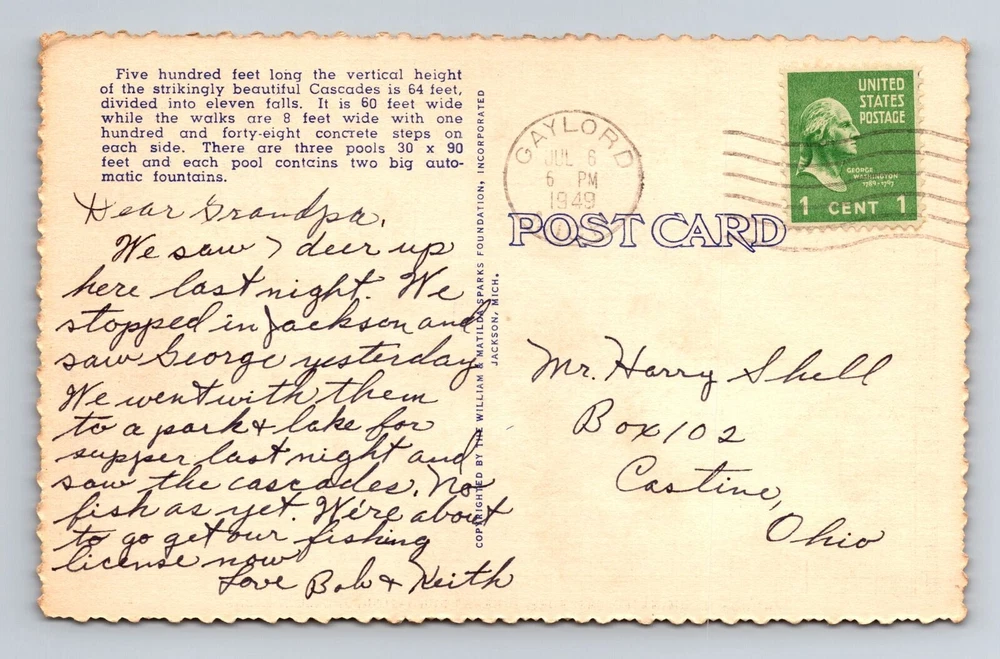 Five hundred feet long the vertical height
of the strikingly beautiful Cascades is 64 feet,
divided into eleven falls. It is 60 feet wide
while the walks are 8 feet wide with one
hundred and forty-eight concrete steps on
each side. There are three pools 30 x 90
feet and each pool contains two big auto-
matic fountains.
Dear Grandpa,
We saw 7 deer up
here last night. We
stopped in Jackson and
saw George yesterday
We went with them
to a park & lake for
supper last night and
saw the cascades. No
fish as yet. We're about
to go get our fishing
license now
Love Bob & Keith
COPYRIGHTED BY THE WILLIAM & MATILDA SPARKS FOUNDATION, INCORPORATED
JACKSON, MICH.
GAYLORD
JUL 6
6 PM
1949
UNITED
STATES
POSTAGE
GEORGE
WASHINGTON
1789-1797
1 CENT 1
POST CARD
Mr. Harry Shell
Box 102
Castine,
Ohio